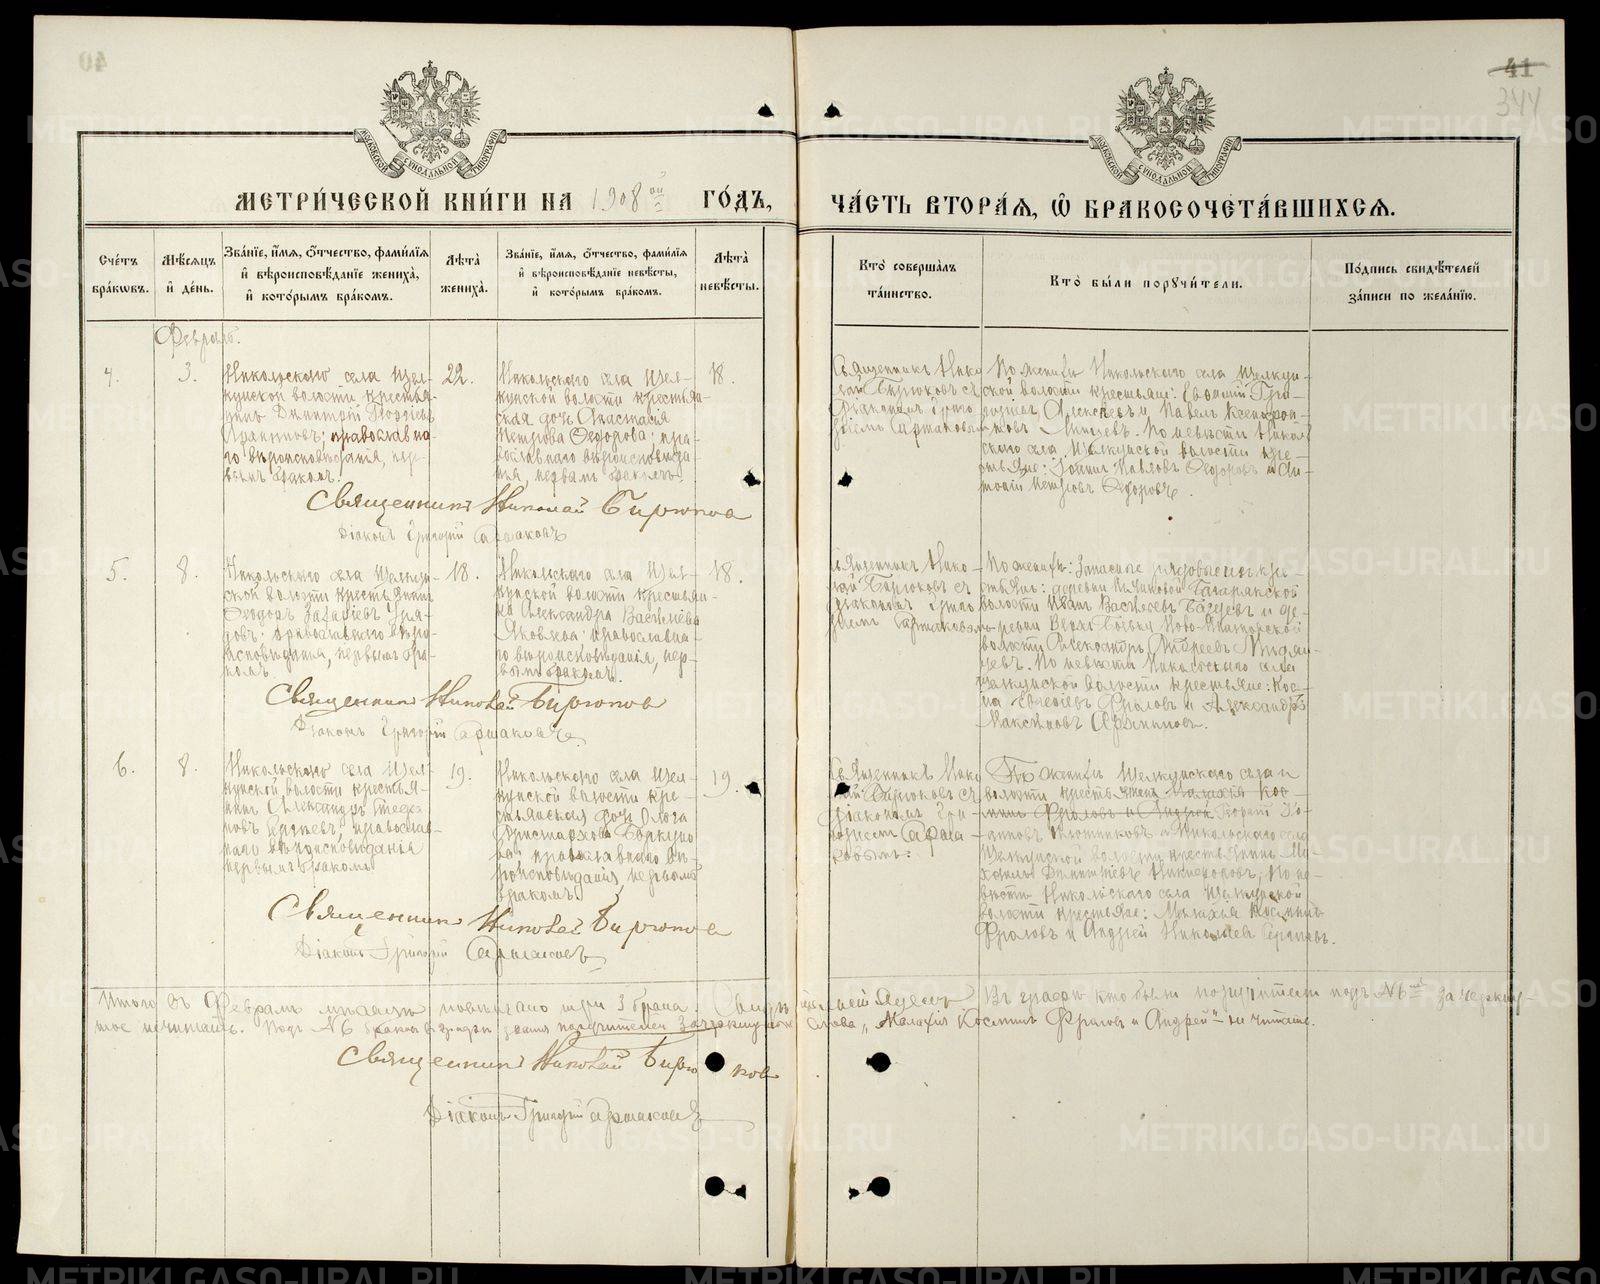 40
41
344
МЕТРИ́ЧЕСКОЙ КНИ́ГИ НА 1908 ый ГО́ДЪ,
ЧА́СТЬ ВТОРА́Я, Ѡ҆ БРАКОСОЧЕТА́ВШИХСЯ.
Сче́тъ
бра́кѡвъ.
Мѣ́сяцъ
и҆ де́нь.
Зва́нїе, и҆́мѧ, ѻ҆́тчество, фами́лїѧ
и҆ вѣроисповѣ́данїе жениха̀,
и҆ кото́рымъ бра́комъ.
Лѣ́та̀
жениха̀.
Зва́нїе, и҆́мѧ, ѻ҆́тчество, фами́лїѧ
и҆ вѣроисповѣ́данїе невѣ́сты,
и҆ кото́рымъ бра́комъ.
Лѣ́та̀
невѣ́сты.
Кто̀ соверша́лъ
та́инство.
Кто̀ бы́ли порꙋчи́тели.
По́дпись свидѣ́телей
за́писи по жела́нїю.
Февраль.
4.
3.
Никольскаго села Щел-
кунской волости крестья-
нинъ Димитрій
православна-
го вѣроисповѣданія, пер-
вымъ бракомъ.
22.
Никольскаго села Щел-
кунской волости крестьян-
ская дочь Анастасія
Петрова Ѳедорова; пра-
вославнаго вѣроисповѣда-
нія, первымъ бракомъ.
18.
Священникъ Нико-
лай Бирюковъ съ
діакономъ Григо-
ріемъ Сартаковымъ
По женихѣ Никольскаго села Щелкун-
ской волости крестьяне: Евфимій Гри-
горіевъ Алексѣевъ и Павелъ Ксенофон-
товъ По невѣстѣ Николь-
скаго села, Щелкунской волости кре-
стьяне: Іоаннъ Павловъ Ѳедоровъ и Ан-
тоній Петровъ Ѳедоровъ.
Священникъ Николай Бирюковъ
Діаконъ Григорій Сартаковъ
5.
8.
Никольскаго села Щелкун-
ской волости крестьянинъ
Ѳеодоръ Захаріевъ
православнаго вѣро-
исповѣданія, первымъ бра-
комъ.
18.
Никольскаго села Щел-
кунской волости крестьян-
ка Александра Васильева
Яковлева: православна-
го вѣроисповѣданія, пер-
вымъ бракомъ.
18.
Священникъ Нико-
лай Бирюковъ съ
діакономъ Григо-
ріемъ Сартаковымъ
По женихѣ: Запасные рядовые изъ кре-
стьянъ: деревни Багарякской
волости Иванъ Васильевъ и де-
ревни Верхъ-Боевки Ново-Ипатовской
волости Александръ Андреевъ
По невѣстѣ Никольскаго села
Щелкунской волости крестьяне: Кос-
ма Фроловъ и Александръ
Максимовъ
Священникъ Николай Бирюковъ
Діаконъ Григорій Сартаковъ
6.
8.
Никольскаго села Щел-
кунской волости крестья-
нинъ Александръ Стефа-
новъ православ-
наго вѣроисповѣданія
первымъ бракомъ
19.
Никольскаго села Щел-
кунской волости кре-
стьянская дочь Ольга
Аристархова
православнаго вѣ-
роисповѣданія, первымъ
бракомъ.
19.
Священникъ Нико-
лай Бирюковъ съ
діакономъ Гри-
горіемъ Сарта-
ковымъ.
По женихѣ Щелкунскаго села и
волости крестьянинъ Малахія Кос-
минъ Фроловъ и Андрей Георгій Іо-
анновъ и Никольскаго села
Щелкунской волости крестьянинъ Ми-
хаилъ Димитріевъ Никифоровъ; По не-
вѣстѣ Никольскаго села Щелкунской
волости крестьяне: Малахія Косминъ
Фроловъ и Андрей Николаевъ
Священникъ Николай Бирюковъ
Діаконъ Григорій Сартаковъ
Итого въ Февралѣ мѣсяцѣ повѣнчано три 3 брака. Въ графѣ кто были поручители подъ № 6мъ зачеркну-
тое не читать. Подъ № 6 слова „Малахія Косминъ Фроловъ и Андрей“ не читать.
Священникъ Николай Бирюковъ
Діаконъ Григорій Сартаковъ
METRIKI.GASO-URAL.RU